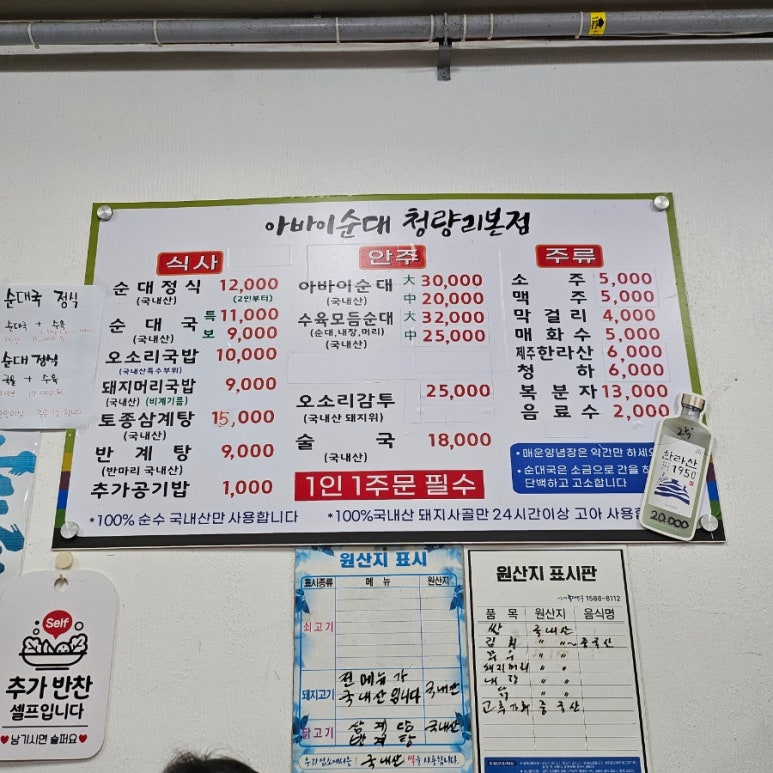 아바이순대 청량리본점
식사
순대정식 12,000
(국내산) (2인부터)
순대국 특 11,000
(국내산) 보 9,000
오소리국밥 10,000
(국내산특수부위)
돼지머리국밥 9,000
(국내산) (비계기름)
토종삼계탕 15,000
(국내산)
반계탕 9,000
(반마리 국내산)
추가공기밥 1,000
안주
아바이순대 大 30,000
(국내산) 中 20,000
수육모듬순대 大 32,000
(순대,내장,머리) 中 25,000
(국내산)
오소리감투 25,000
(국내산 돼지위)
술국 18,000
(국내산)
1인 1주문 필수
주류
소주 5,000
맥주 5,000
막걸리 4,000
매화수 5,000
제주한라산 6,000
청하 6,000
복분자 13,000
음료수 2,000
• 매운양념장은 약간만 하세요
• 순대국은 소금으로 간을 하
단백하고 고소합니다.
*100% 순수 국내산만 사용합니다
*100%국내산 돼지사골만 24시간이상 고아 사용합
25°
한라산
1950
20.000
순대국 정식
순대국 + 수육
순대 정식
국물 + 수육
Self
추가 반찬
셀프입니다
♥남기시면 슬퍼요♥
원산지 표시
표시종류 메뉴 원산지
쇠고기
돼지고기 전 메뉴가 국내산입니다 국내산
닭고기 삼계탕 반계탕 국내산
우리업소에서는 국내산 떡을 사용합니다.
원산지 표시판
1588-8112
품목 원산지 음식명
쌀 국내산
김치 〃 〃 ~ 중국산
무우 〃 〃
돼지머리 〃 〃
내장 〃 〃
닭 〃 〃
고추가루 중국산